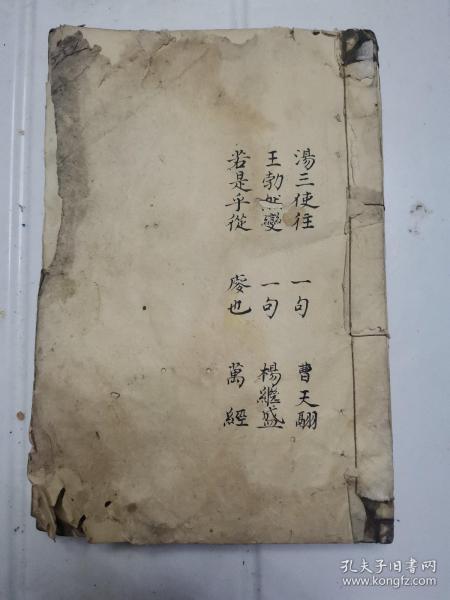 湯三使往　一句　曹天翮
王勃然變　一句　楊繼盛
若是乎從　廋也　萬經
孔夫子旧书网
www.kongfz.com